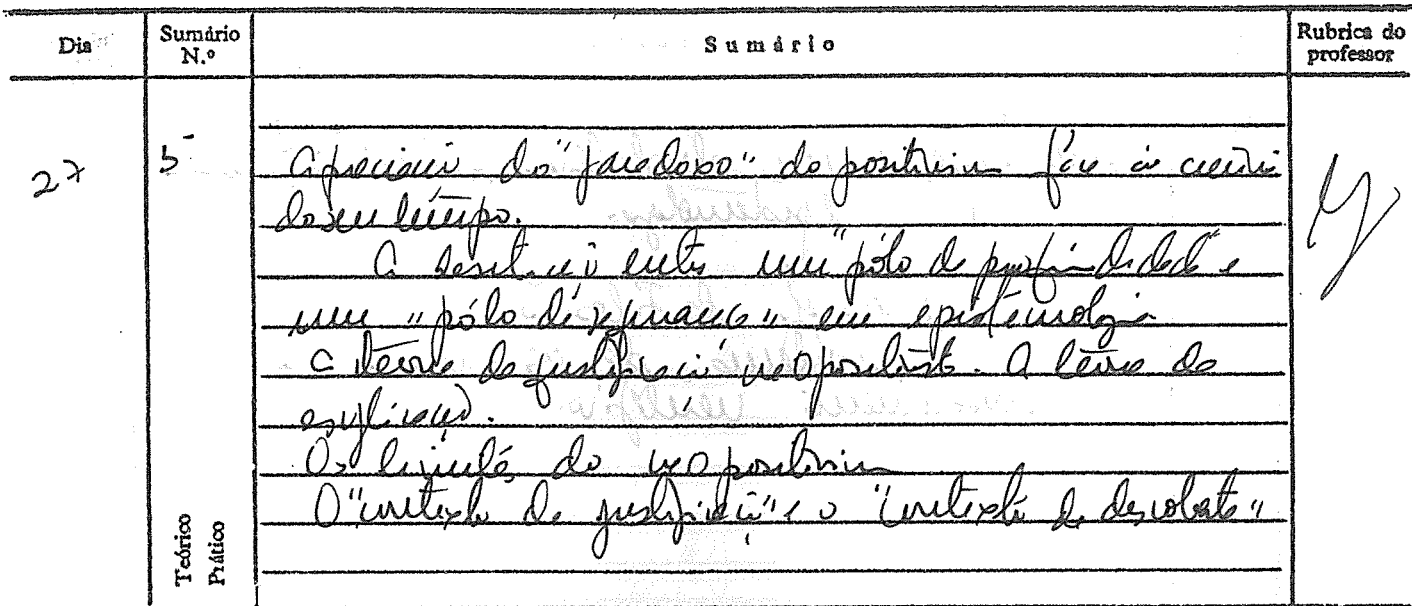 Dia
Sumário N.º
Sumário
Rubrica do professor
27
5
Apreciação do "paradoxo" do positivismo face à ciência
do seu tempo.
A entre um "pólo de profundidade" e
um "pólo de " em epistemologia
A teoria da justificação neopositivista. A teoria da
explicação.
Os limites do neopositivismo
O "contexto da justificação" e o "contexto da descoberta"
Teórico
Prático